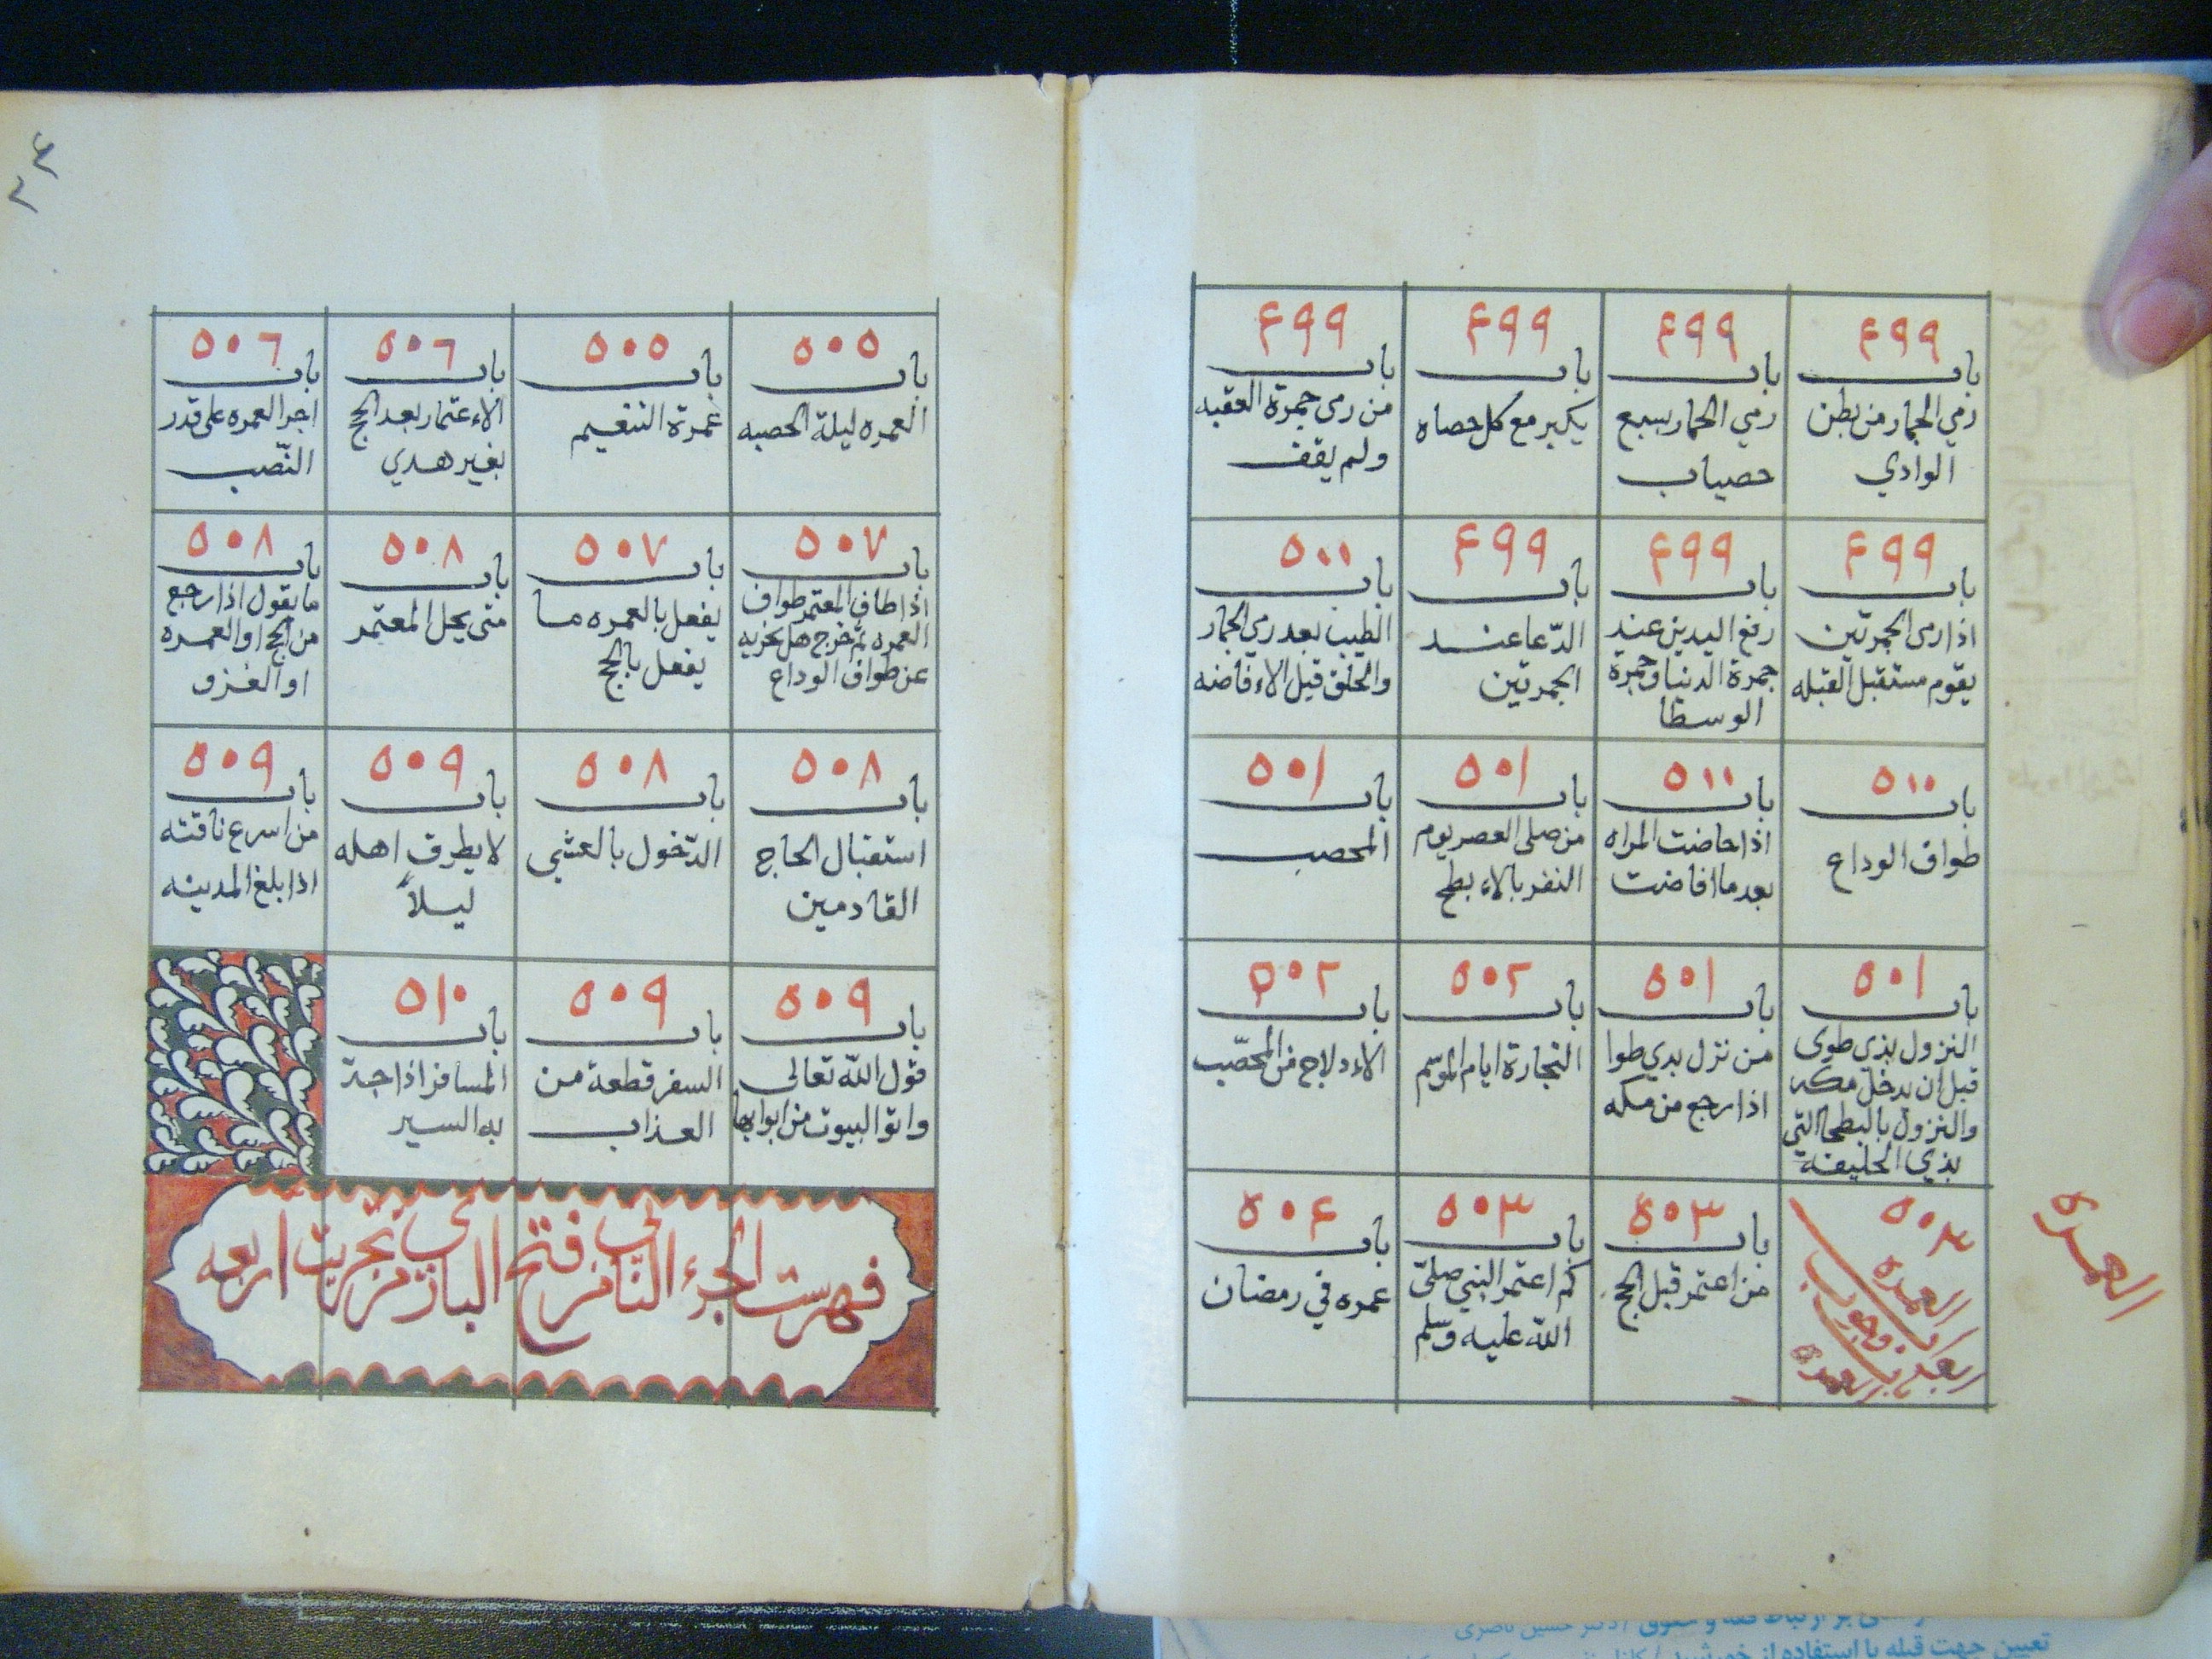 ٤٩٩
باب
رمي الجمار من بطن
الوادي
٤٩٩
باب
رمي الجمار بسبع
حصيات
٤٩٩
باب
يكبر مع كل حصاه
٤٩٩
باب
من رمى جمرة العقبه
ولم يقف
٤٩٩
باب
اذا رمى الجمرتين
يقوم مستقبل القبله
٤٩٩
باب
رفع اليدين عند
جمرة الدنيا وجمرة
الوسطا
٤٩٩
باب
الدّعا عند
الجمرتين
٥٠٠
باب
الطيب بعد رمي الجمار
والحلق قبل الاءفاضه
٥٠٠
باب
طواف الوداع
٥٠٠
باب
اذا حاضت المراه
بعد ما افاضت
٥٠١
باب
من صلى العصر يوم
النفر بالاءبطح
٥٠١
باب
المحصب
٥٠١
باب
النزول بذي طوى
قبل ان يدخل مكه
والنزول بالبطحا التي
بذي الحليفه
٥٠١
باب
من نزل بدي طوا
اذا رجع من مكه
٥٠٢
باب
التجارة ايام الموسم
٥٠٢
باب
الاءدلاج من المحصّب
العمرة
٥٠٣
العمره
باب وجوب
العمرة
٥٠٣
باب
من اعتمر قبل الحج
٥٠٣
باب
كم اعتمر النبي صلىّ
الله عليه وسلم
٥٠٤
باب
عمره في رمضان
٥٠٥
باب
العمره ليلة الحصبه
٥٠٥
باب
عمرة التنعيم
٥٠٦
باب
الاءعتمار بعد الحج
بغير هدي
٥٠٦
باب
اجر العمره على قدر
النّصب
٥٠٧
باب
اذا طاف المعتمر طواف
العمره ثم خرج هل يجزيه
عن طواف الوداع
٥٠٧
باب
يفعل بالعمره ما
يفعل بالحج
٥٠٨
باب
متى يحل المعتمر
٥٠٨
باب
ما يقول اذا رجع
من الحج او العمره
او الغزو
٥٠٨
باب
استقبال الحاج
القادمين
٥٠٨
باب
الدّخول بالعشي
٥٠٩
باب
لا يطرق اهله
ليلاً
٥٠٩
باب
من اسرع ناقته
اذا بلغ المدينه
٥٠٩
باب
قول الله تعالى
واتو البيوت من ابوابها
٥٠٩
باب
السفر قطعة من
العذاب
٥١٠
باب
المسافر اذا جدّ
به السير
فهرست الجزء الثّاني من فتح الباري من تجزيت اربعه